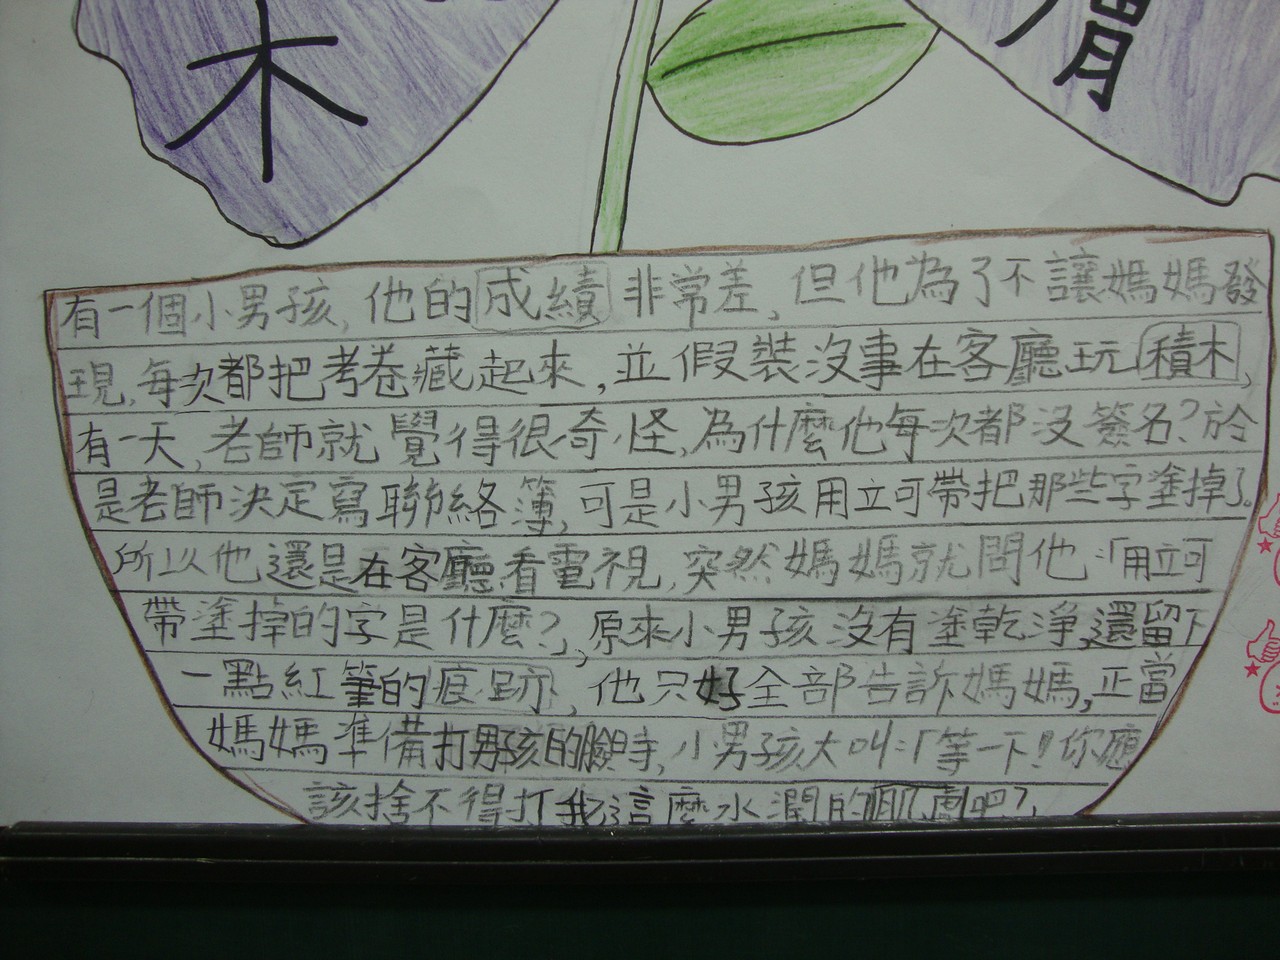 木
有一個小男孩,他的成績非常差,但他為了不讓媽媽發
現,每次都把考卷藏起來,並假裝沒事在客廳玩積木,
有一天,老師就覺得很奇怪,為什麼他每次都沒簽名?於
是老師決定寫聯絡簿,可是小男孩用立可帶把那些字塗掉了。
所以他還是在客廳看電視,突然媽媽就問他:「用立可
帶塗掉的字是什麼?」,原來小男孩沒有塗乾淨,還留下
一點紅筆的痕跡,他只好全部告訴媽媽,正當
媽媽準備打男孩的臉時,小男孩大叫:「等一下!你應
該捨不得打我這麼水潤的肌膚吧?」